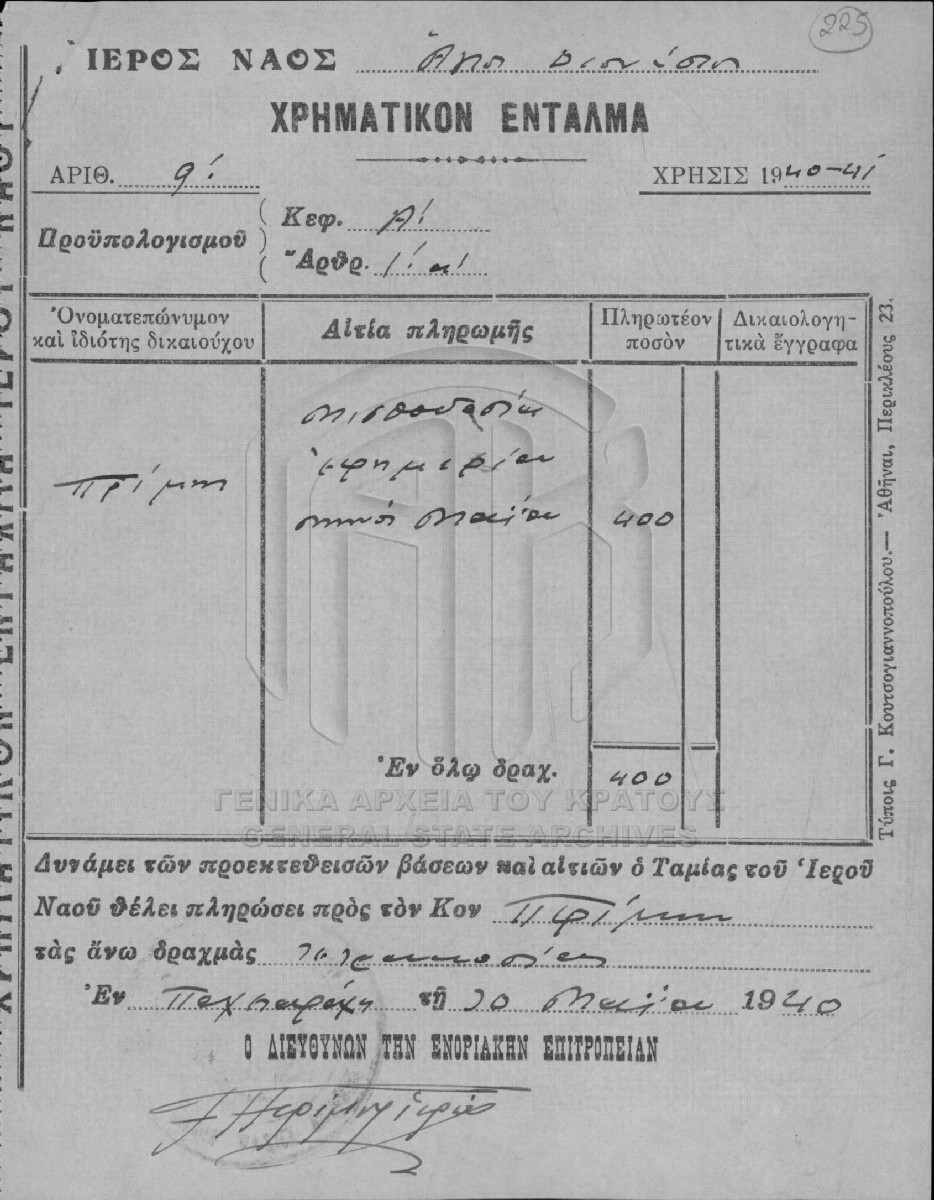 225
ΙΕΡΟΣ ΝΑΟΣ Ἁγίου Διονυσίου
ΧΡΗΜΑΤΙΚΟΝ ΕΝΤΑΛΜΑ
ΑΡΙΘ. 9!
ΧΡΗΣΙΣ 1940-41
Προϋπολογισμοῦ
Κεφ. Α!
Ἄρθρ. 1!
Ὀνοματεπώνυμον καὶ ἰδιότης δικαιούχου
Αἰτία πληρωμῆς
Πληρωτέον ποσὸν
Δικαιολογητικὰ ἔγγραφα
Πρίμπη
μισθοδοσία
ἐφημερίου
μηνὸς Μαΐου 400
Ἐν ὅλῳ δραχ. 400
ΓΕΝΙΚΑ ΑΡΧΕΙΑ ΤΟΥ ΚΡΑΤΟΥΣ
GENERAL STATE ARCHIVES
Δυνάμει τῶν προεκτεθεισῶν βάσεων καὶ αἰτιῶν ὁ Ταμίας τοῦ Ἱεροῦ
Ναοῦ θέλει πληρώσει πρὸς τὸν Κον Πρίμπη
τὰς ἄνω δραχμὰς τετρακοσίας
Ἐν τῇ 30 Μαΐου 1940
Ο ΔΙΕΥΘΥΝΩΝ ΤΗΝ ΕΝΟΡΙΑΚΗΝ ΕΠΙΤΡΟΠΕΙΑΝ
Τύποις Γ. Κουτσογιαννοπούλου.— Ἀθῆναι, Περικλέους 23.